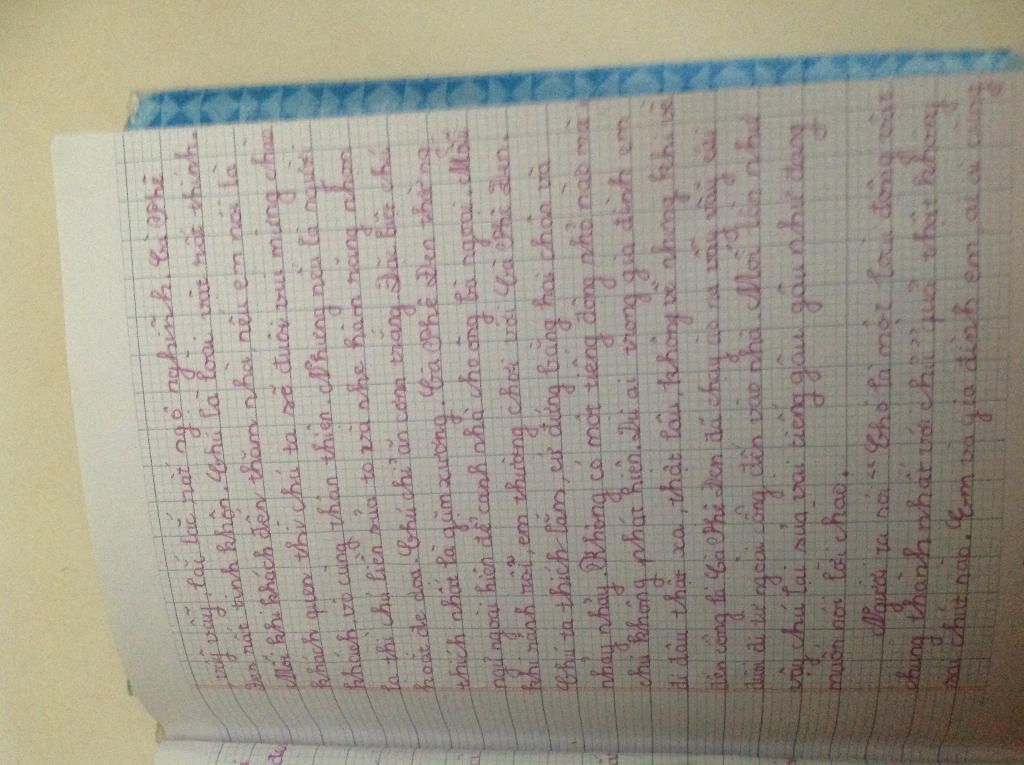 vẫy vẫy, lắc lắc rất ngộ nghĩnh. Cà Phê
Đen rất tinh khôn. Chú là loài vật rất thính.
Mỗi khi khách đến thăm nhà, nếu em nói là
khách quen thì chú ta sẽ đuôi vui mừng chào
khách vô cùng thân thiện. Nhưng nếu là người
lạ thì chú liền sủa to và nhe hàm răng nhọn
hoắt đe dọa. Chú chỉ ăn cơm trắng. Đặc biệt chú
thích nhất là gặm xương. Cà Phê Đen thường
ngủ ngoài hiên để canh nhà cho ông bà ngoại. Mỗi
khi rảnh rỗi, em thường chơi với Cà Phê Đen.
Chú ta thích lắm, cứ đứng bằng hai chân và
nhảy nhảy. Không có một tiếng động nhỏ nào mà
chú không phát hiện. Dù ai trong gia đình em
đi đâu thật xa, thật lâu, không về nhưng khi về
đến cổng là Cà Phê Đen đã chạy ào ra vẫy vẫy cái
đuôi đi từ ngoài cổng đến vào nhà. Mỗi lần như
vậy chú lại sủa vài tiếng gâu gâu như đang
muốn nói lời chào.
Người ta nói “Chó là một loài động vật
chung thành nhất với chủ” quả thật không
sai chút nào. Em và gia đình em, ai ai cũng